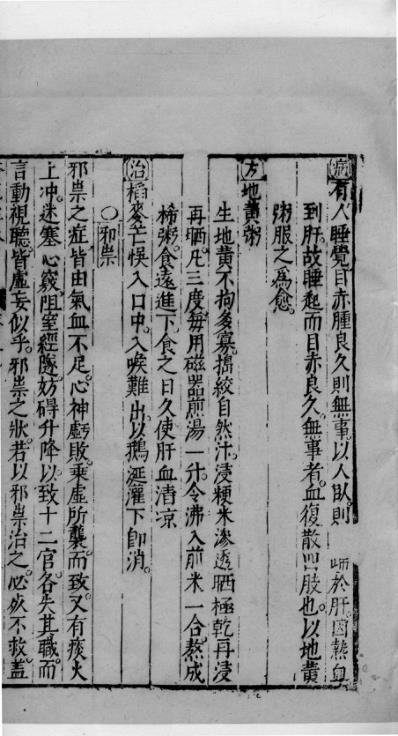 病有人睡覺目赤腫良久則無事以人臥則 於肝因熱血
到肝故睡起而目赤良久無事者血復散四肢也以地黃
粥服之為愈
方地黃粥
生地黃不拘多寡搗絞自然汁浸粳米滲透晒極乾再浸
再晒凡三度每用磁器煎湯一升令沸入前米一合熬成
稀粥食遠進下食之日久使肝血清凉
治稻麥芒悞入口中入喉難出以鵝涎灌下即消
〇邪祟
邪祟之症皆由氣血不足心神虧敗乘虛所襲而致又有痰火
上冲迷塞心竅阻窒經隧妨碍升降以致十二官各失其職而
言動視聽皆虛妄似乎邪祟之狀若以邪祟治之必致不救蓋